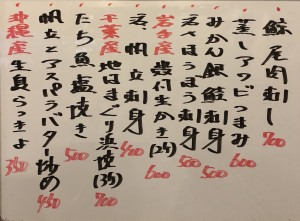 鯨尾肉刺し 700
蒸しアワビつまみ 600
みかん銀鮭刺身 500
活べほうぼう刺身 500
岩手産 殻付生かき(2ケ) 600
活〆帆立刺身 400
千葉産 地はまぐり浜焼(3ケ) 700
たち魚塩焼き 500
帆立とアスパラバター炒め 450
沖縄産 生島らっきょ 350